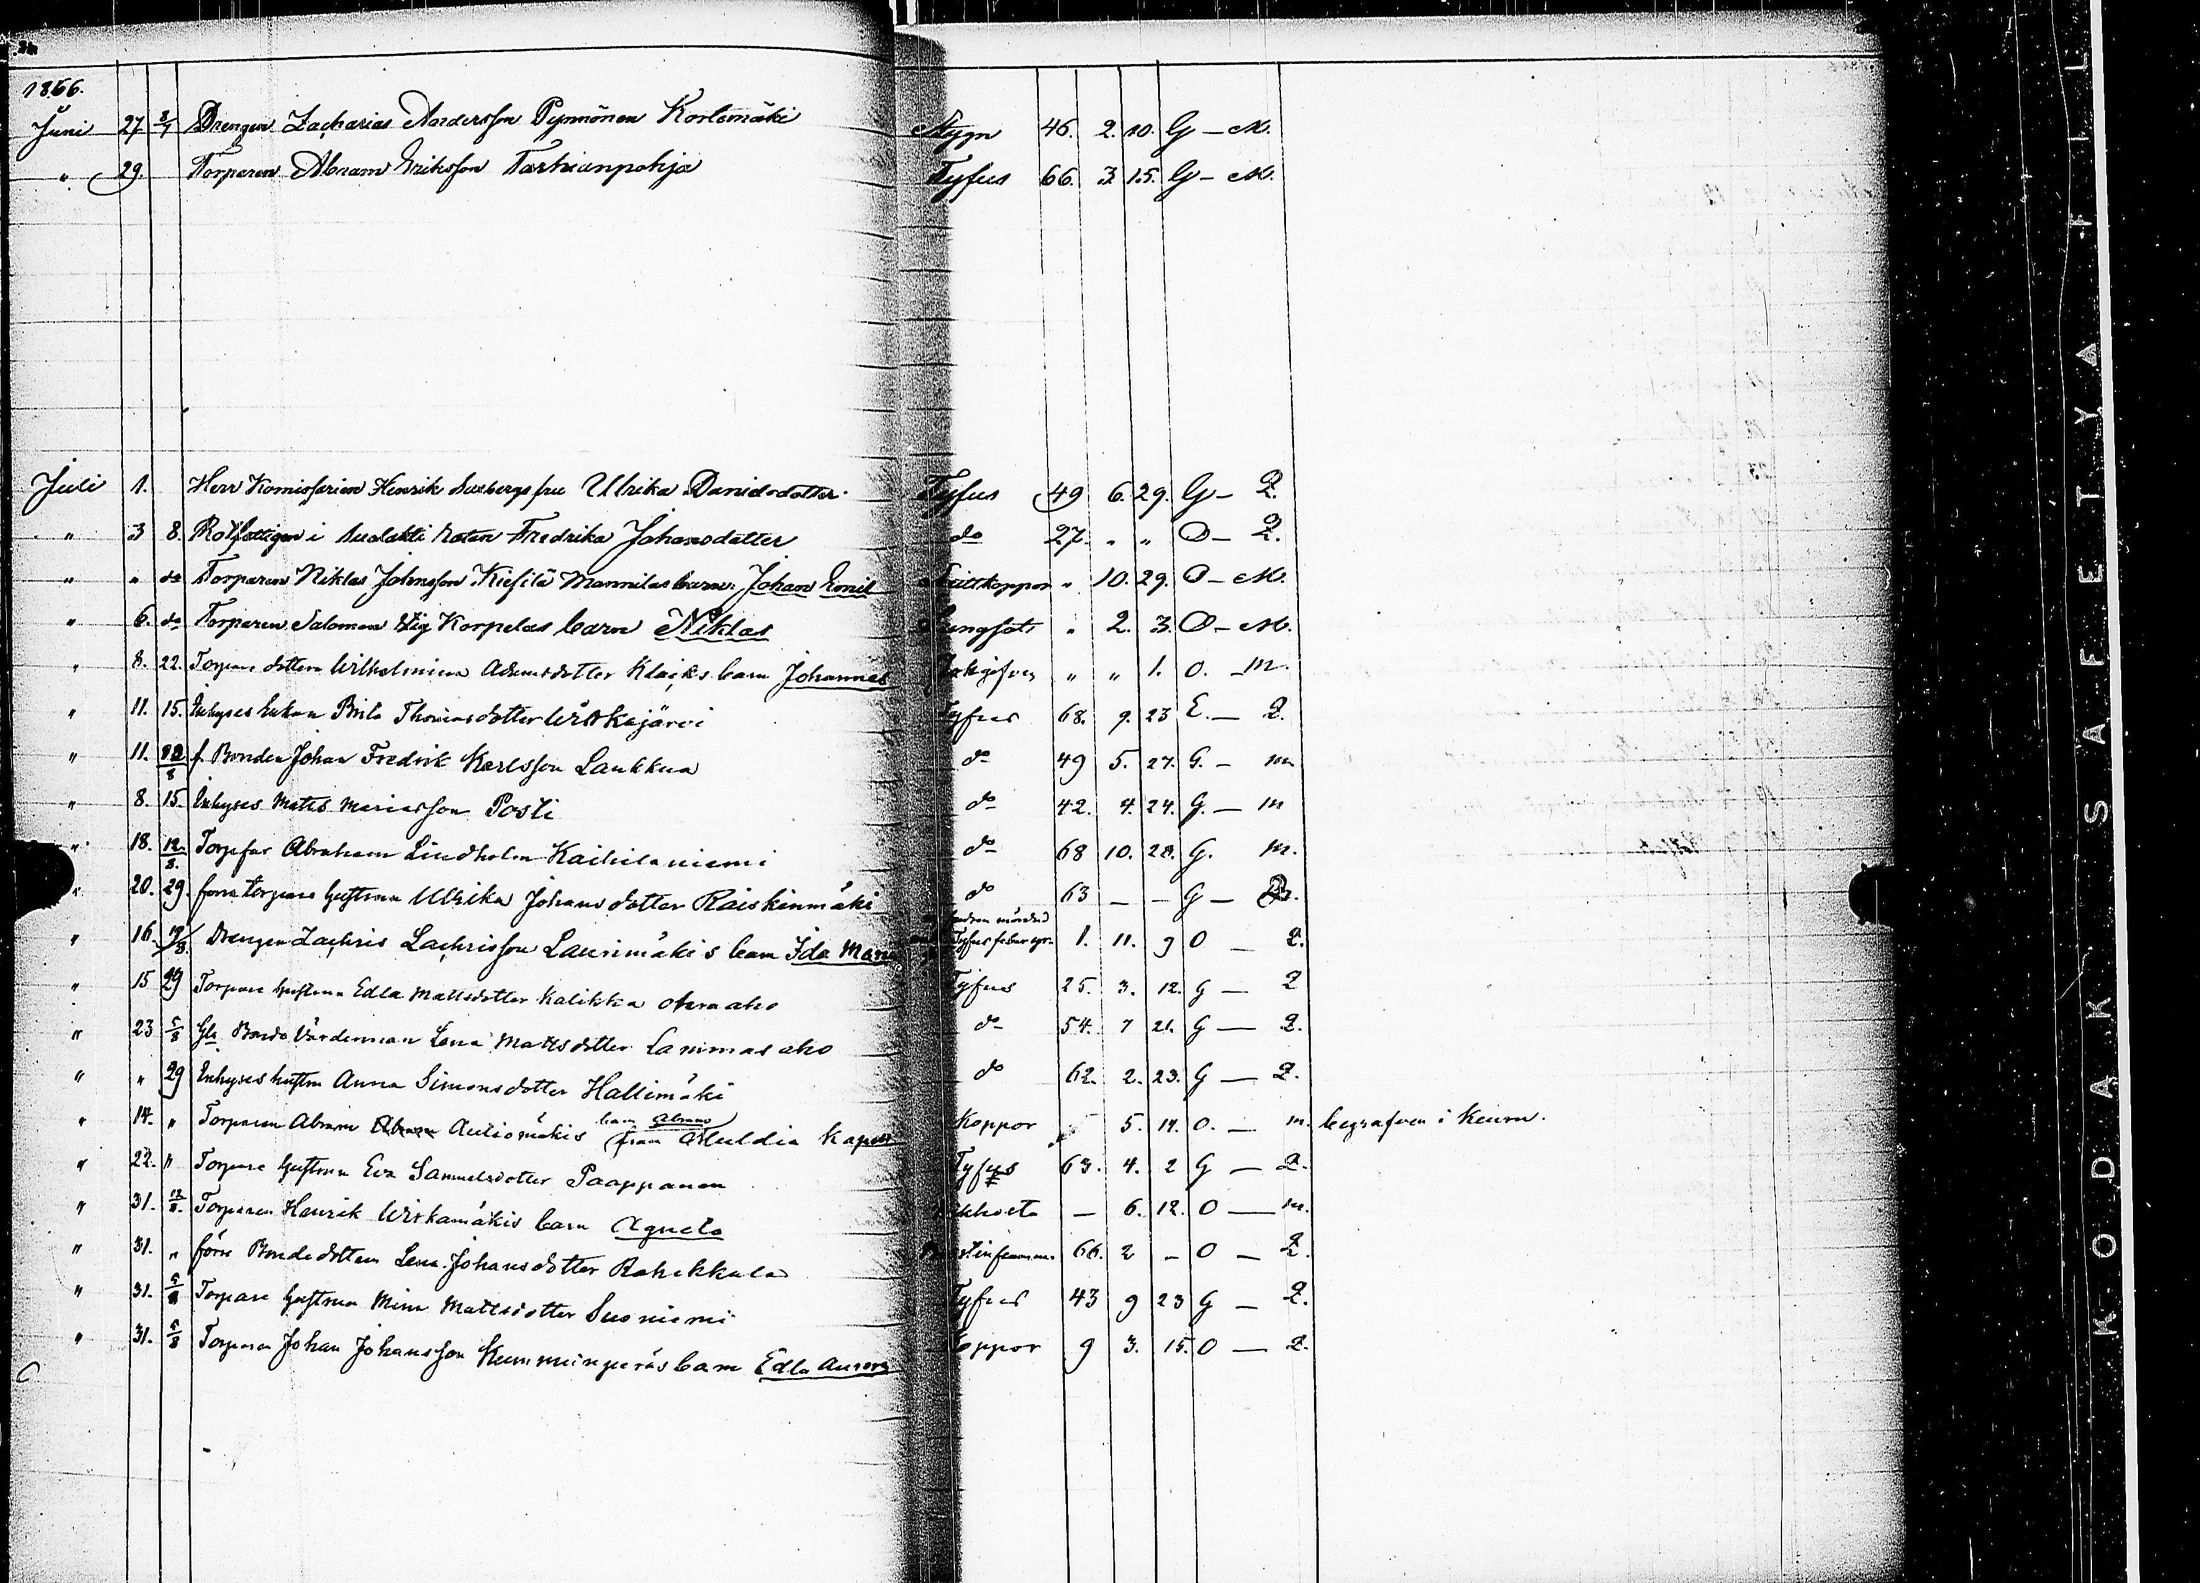 1866.
Juni 27 8/7 Drengen Zacharias Andersson Pynnönen Kortemäki Stygn 46. 2. 10. G - M.
" 29. Torparen Abram Eriksson Tarhianpohja Tyfus 66. 3. 15. G - M.
Juli 1. Herr Komissarien Henrik fru Ulrika Danielsdotter Tyfus 49 6. 29. G - Q.
" 3 8. Rotfattigen i roten Fredrika Johansdotter do 27. " " O - Q.
" " do Torparen Niklas Johnsson Kiesilä Mannilas barn Johan Emil koppor " 10. 29. O - M.
" 6. do Torparen Salomon Stig Korpelas barn Niklas Lungsot " 2. 3. O - M.
" 8. 22. Torpare dottern Wilhelmina Adamsdotter barn Johannes " " 1. O. - m.
" 11. 15. Inhyses Enkan Brita Thomasdotter Tyfus 68. 9. 23 E. - Q.
" 11. f. Bonden Johan Fredrik Karlsson Laukkua do 49 5. 27. G. - m
" 8. 15. Inhyses Matts Mariasson Posti do 42. 4. 24. G. - m
" 18. 12/8. Torpfar Abraham Lindholm Kaihilaniemi do 68 10. 28. G. m.
" 20. 29. forra torpare hustrun Ulrika Johansdotter Raiskinmäki do 63 - - G - Q.
" 16. Drengen Zachris Zachrisson Laurimäkis barn Ida Maria 1. 11. 9 O - Q.
" 15 29 Torpare hustrun Edla Mattsdotter Kalikka Tyfus 25. 3. 12. G - Q
" 23 5/8 Gla Bonde Värdinnan Lena Mattsdotter Lammasaho do 54. 7 21. G - Q.
" " 29 Inhyses hustru Anna Simonsdotter Hallimäki do 62. 2. 23. G - Q.
" 14. " Torparen Abram Autiomäkis barn Abram från Muldia Kapell Koppor 5. 14. O. - m. begrafven i Keuru.
" 22. " Torpare hustrun Eva Samuelsdotter Paappanen Tyfus 63. 4. 2 G - Q.
" 31. 12/8. Torparen Henrik Wirkamäkis barn Agneta Kikhosta - 6. 12. O - m.
" 31. " förre Bonde dottern Lena Johansdotter Rahikkala 66. 2 - O - Q.
" 31. 5/8 Torpare hustrun Mina Mattsdotter Suoniemi Tyfus 43 9 23 G - Q.
" 31. 5/8 Torparen Johan Johansson barn Edla Aurora Koppor 9 3. 15. O - Q.
KODAK SAFETY A FIL